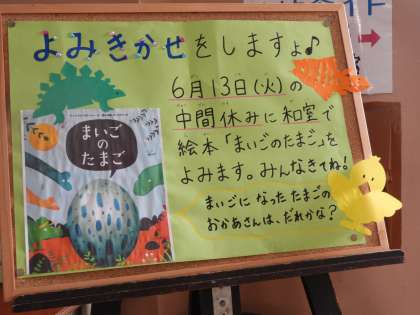 よみきかせをしますよ♪
6月13日(火)の
中間休みに和室で
絵本「まいごのたまご」を
よみます。みんなきてね!
まいごに なった たまごの
おかあさんは、だれかな?
まいごの
たまご